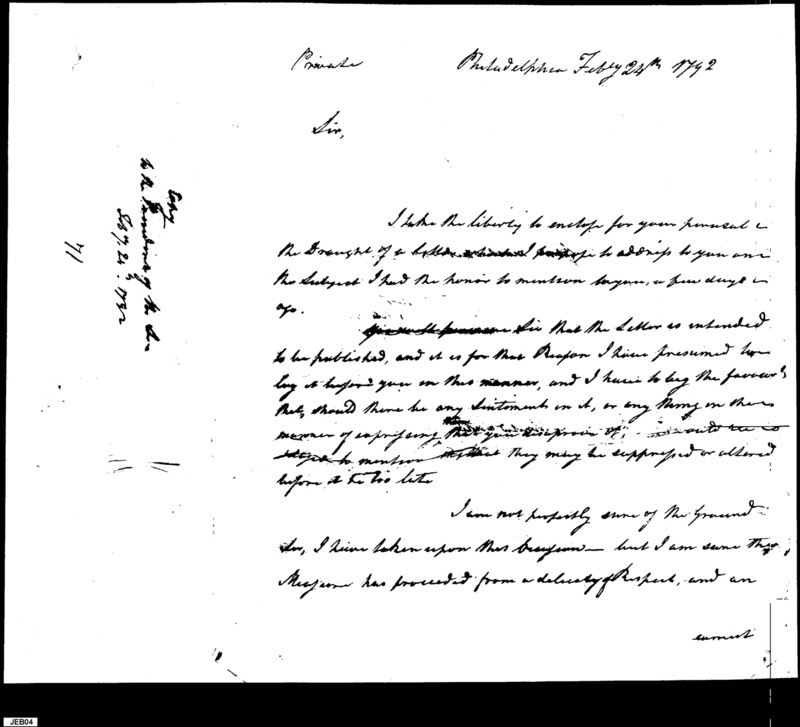 Private Philadelphia Feby 24th 1792
Sir,
I take the liberty to enclose for your perusal
the Draught of a letter which I propose to address to you on
the Subject I had the honor to mention to you, a few days
ago.
Sir that the Letter is intended
to be published, and it is for that Reason I have presumed to
lay it before you in this manner, and I have to beg the favour
that, should there be any Sentiments in it, or any thing in the
manner of expressing them that you disapprove of,
to mention that they may be suppressed or altered
before it be too late
I am not perfectly sure of the Ground
Sir, I have taken upon this occasion — but I am sure the
Measure has proceeded from a delicacy & Respect, and an
earnest
Copy
to the President of the
Feby. 24th. 1792
71
JEB04